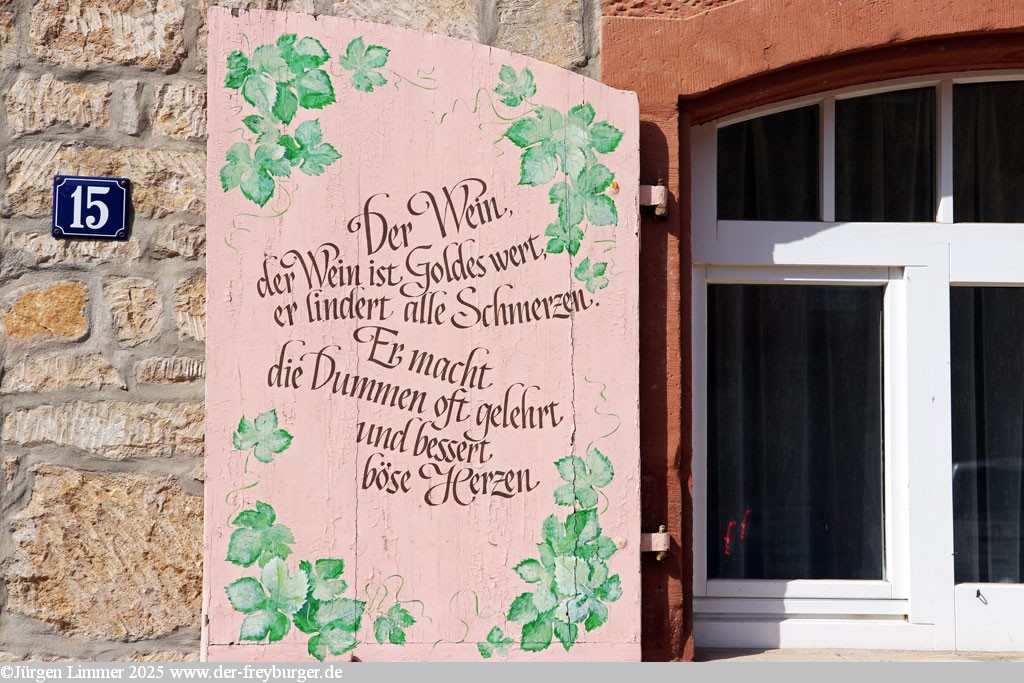 15
Der Wein,
der Wein ist Goldes wert,
er lindert alle Schmerzen.
Er macht
die Dummen oft gelehrt
und bessert
böse Herzen
©Jürgen Limmer 2025 www.der-freyburger.de